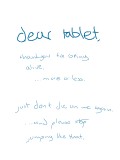 dear tablet,
nevertheless for being
alive
...more or less
just don't die on me again
...and please stop
jumping the track.